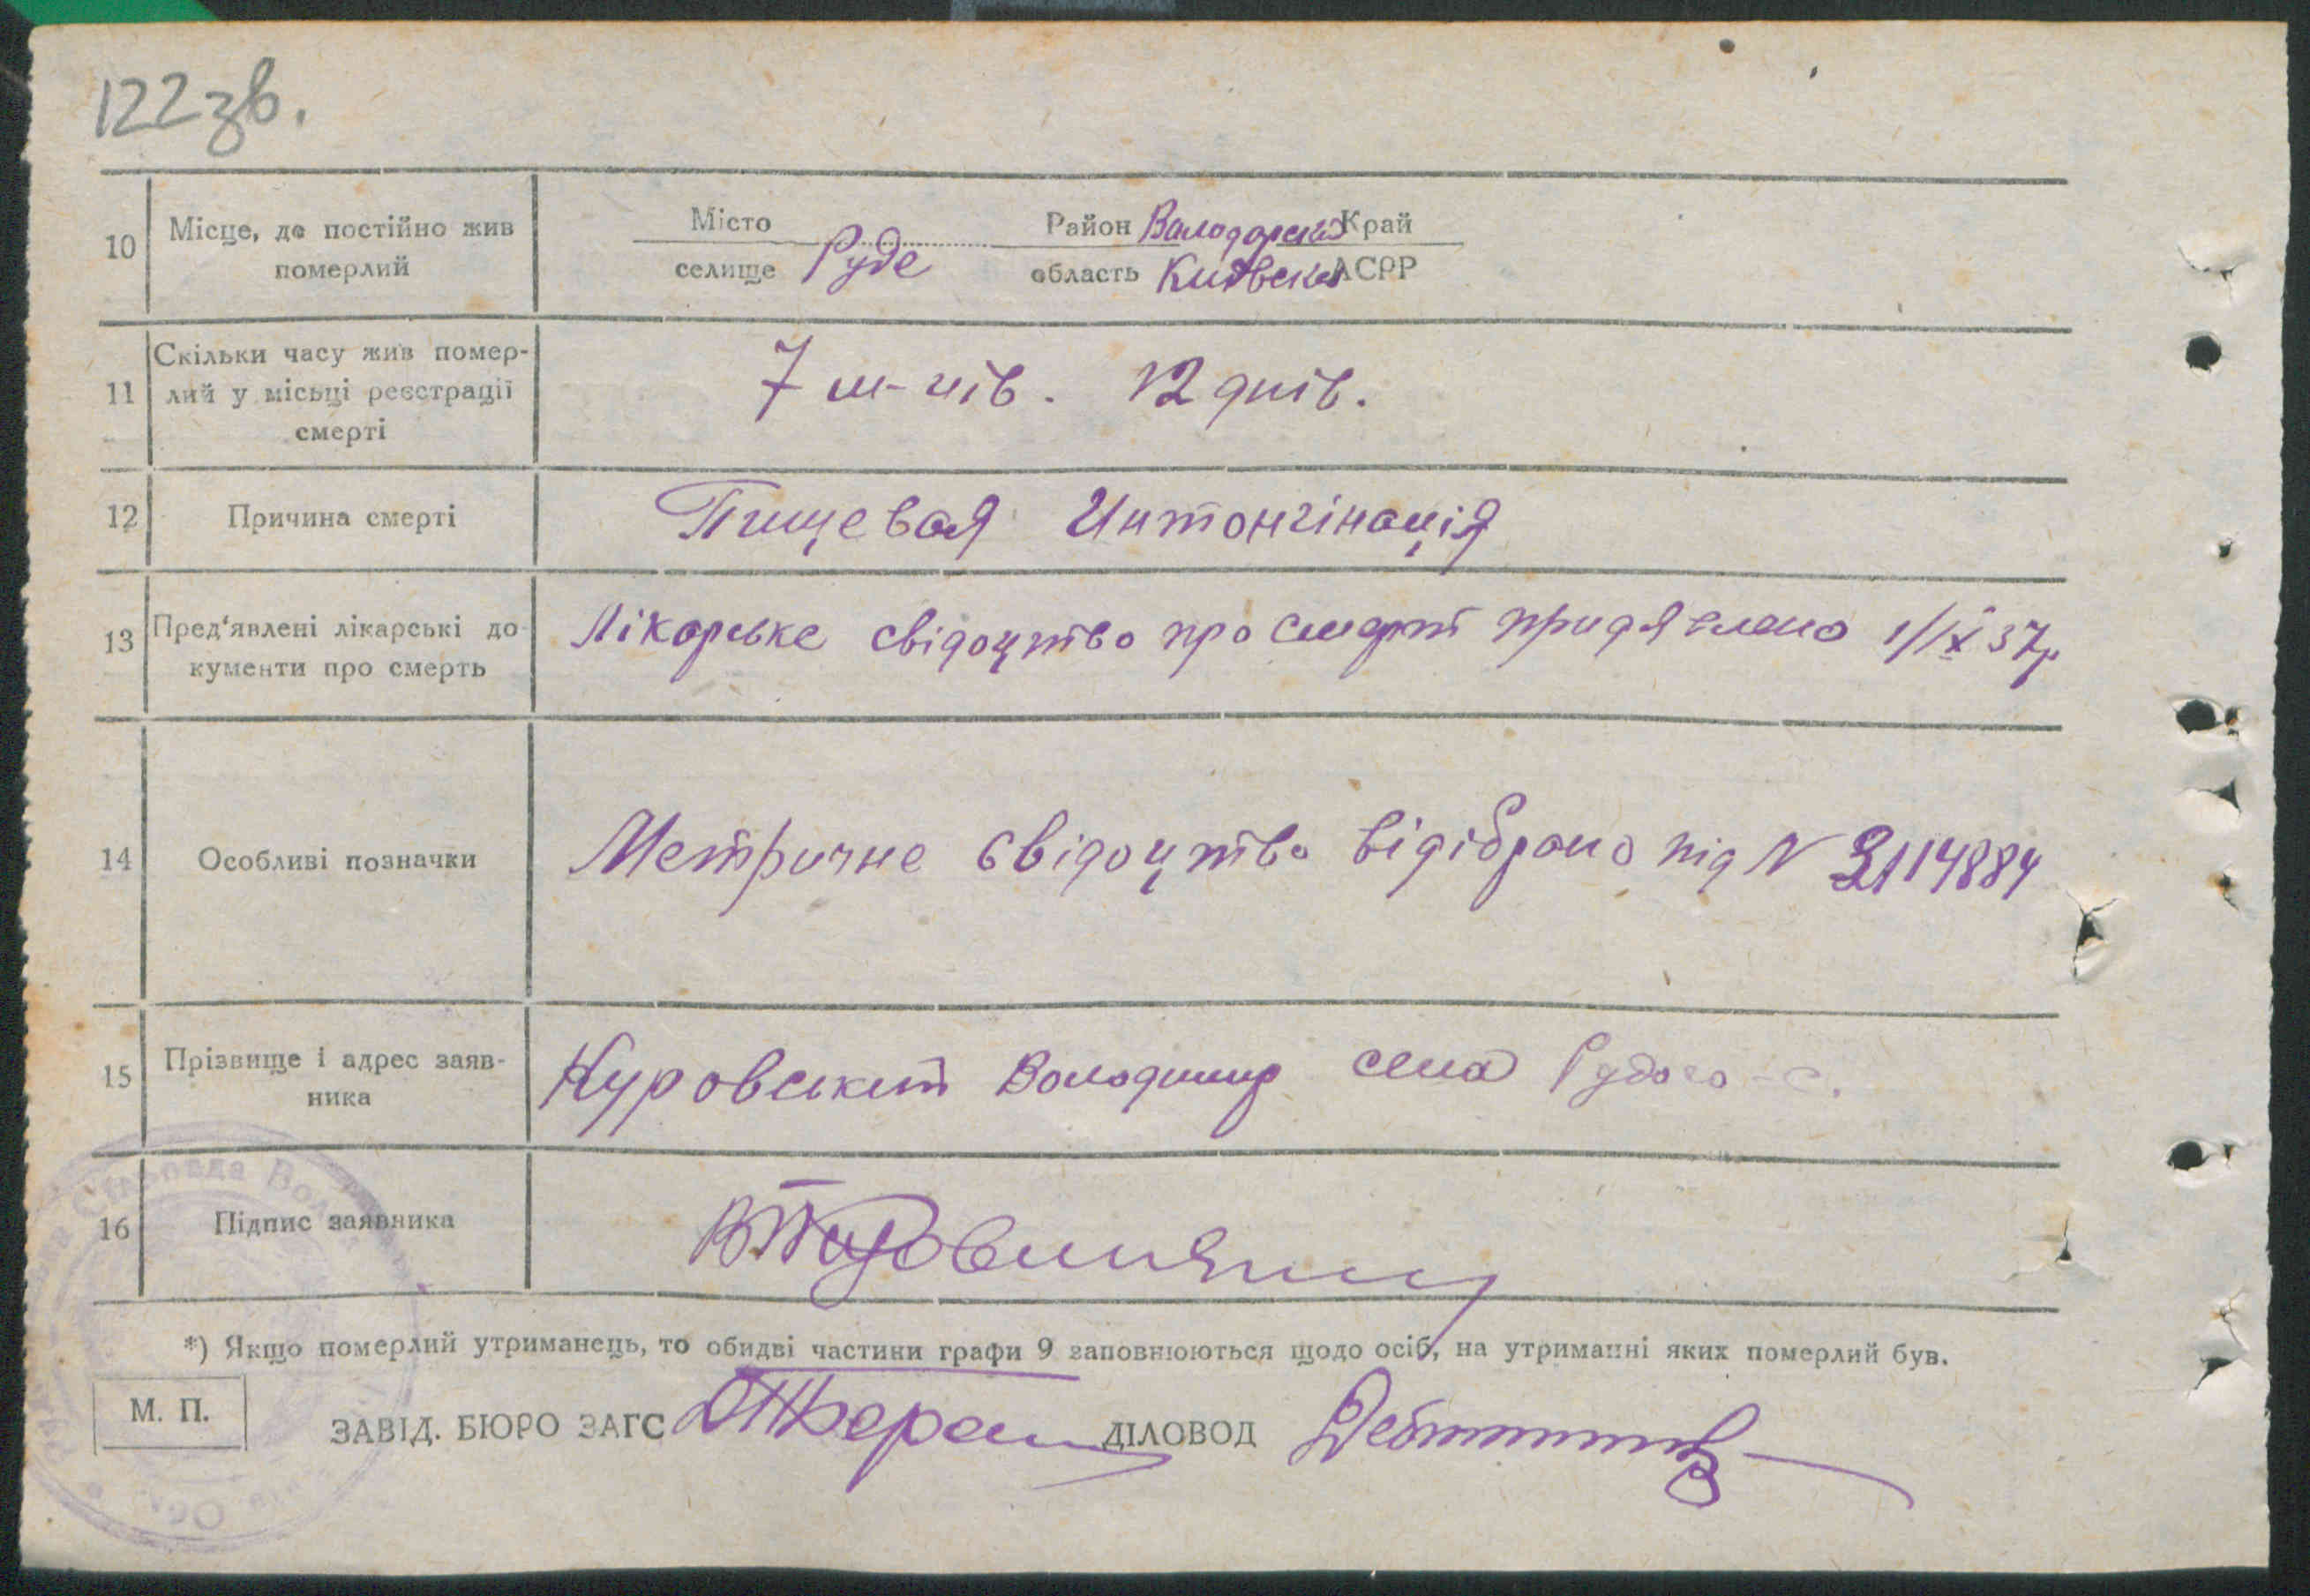 122 зв.
10 Місце, де постійно жив померлий
Місто селище Руде Район Володарськ Край область Київська АСРР
11 Скільки часу жив помер-
лий у місьці реєстрації
смерті
7 м-ців. 12 днів.
12 Причина смерті Пищевая Интонгінація
13 Пред'явлені лікарські до-
кументи про смерть
Лікарське свідоцтво про смерт 1/IX 37р
14 Особливі позначки Метричне свідоцтво відібрано під N 2114884
15 Прізвище і адрес заяв-
ника
Володимир села Рудого
16 Підпис заявника
*) Якщо померлий утриманець, то обидві частини графи 9 заповнюються щодо осіб, на утриманні яких померлий був.
М. П.
ЗАВІД. БЮРО ЗАГС ДІЛОВОД